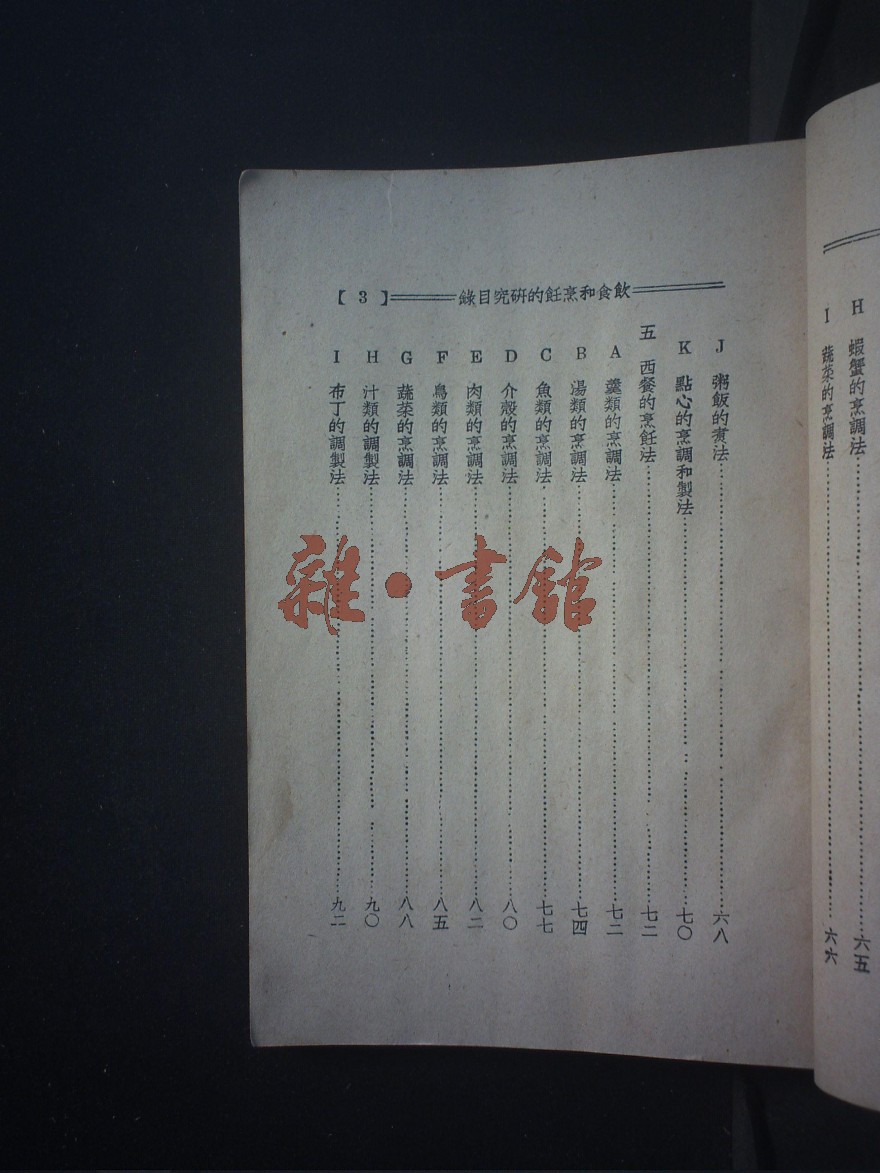 H 蝦蟹的烹調法……六五
I 蔬菜的烹調法……六六
飲食和烹飪的研究目錄【3】
J 粥飯的煮法……六八
K 點心的烹調和製法……七〇
五 西餐的烹飪法……七二
A 羹類的烹調法……七二
B 湯類的烹調法……七四
C 魚類的烹調法……七七
D 介殼的烹調法……八〇
E 肉類的烹調法……八二
F 鳥類的烹調法……八五
G 蔬菜的烹調法……八八
H 汁類的調製法……九〇
I 布丁的調製法……九二
雜·書館